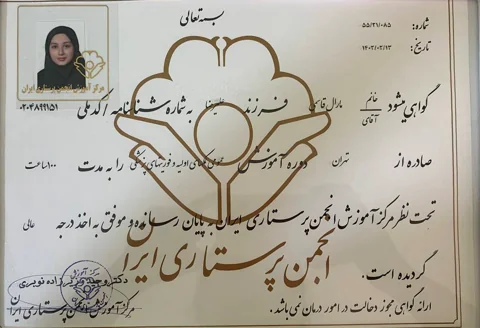 بسمه‌تعالی
شماره: ۵۵/۲۱/۰۸۵
تاریخ: ۱۴۰۲/۰۲/۱۳
مرکز آموزش انجمن پرستاری ایران
۰۲۰۴۸۹۹۱۵۱
گواهی میشود خانم آقای مارال قاسمی فرزند علیرضا به شماره شناسنامه / کد ملی
صادره از تهران دوره آموزش کمک‌های اولیه و فوریتهای پزشکی را به مدت ۱۰۰ ساعت
تحت نظر مرکز آموزش انجمن پرستاری ایران به پایان رسانده و موفق به اخذ درجه عالی
گردیده است.
انجمن پرستاری ایران
مرکز آموزش انجمن پرستاری ایران
ارائه گواهی مجوز دخالت در امور درمان نمی باشد.